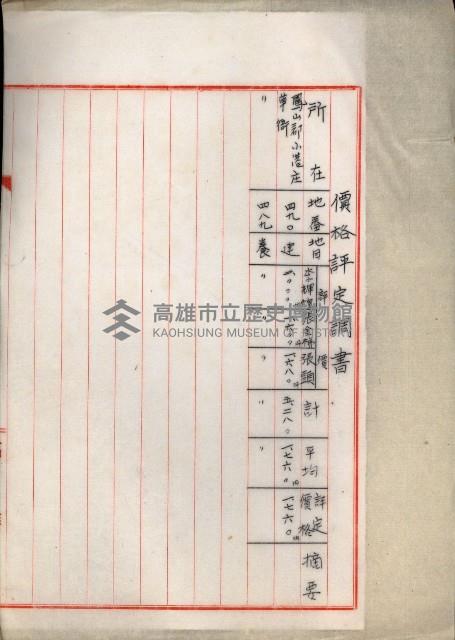 價格評定調書
所在 地番 地目 評價 張頭 計 平均 評定價格 摘要
鳳山郡小港庄草衙 四九〇 建 一六八〇 五二八〇 一七六〇 一七六〇
〃 四八九 養 〃 〃 〃 〃
高雄市立歷史博物館
KAOHSIUNG MUSEUM OF HISTORY